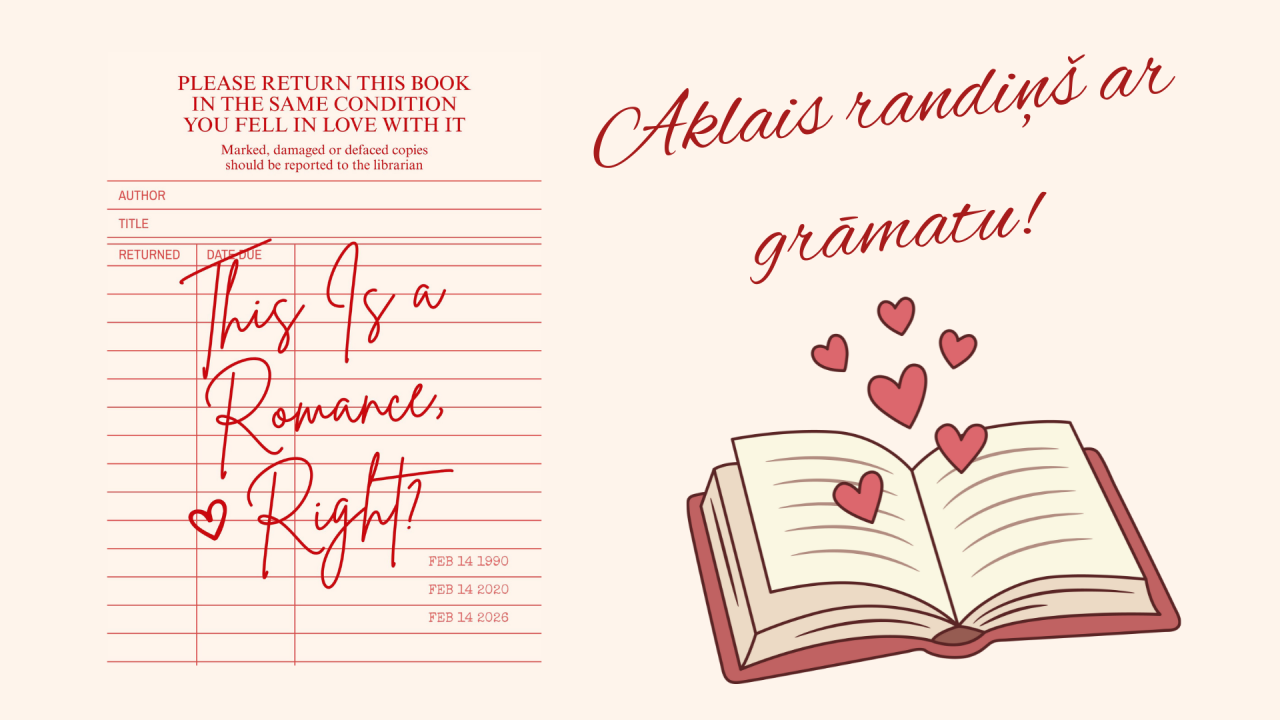 PLEASE RETURN THIS BOOK
IN THE SAME CONDITION
YOU FELL IN LOVE WITH IT
Marked, damaged or defaced copies
should be reported to the librarian
AUTHOR
TITLE
RETURNED DATE DUE
This Is a
Romance,
Right?
FEB 14 1990
FEB 14 2020
FEB 14 2026
Aklais randiņš ar
grāmatu!